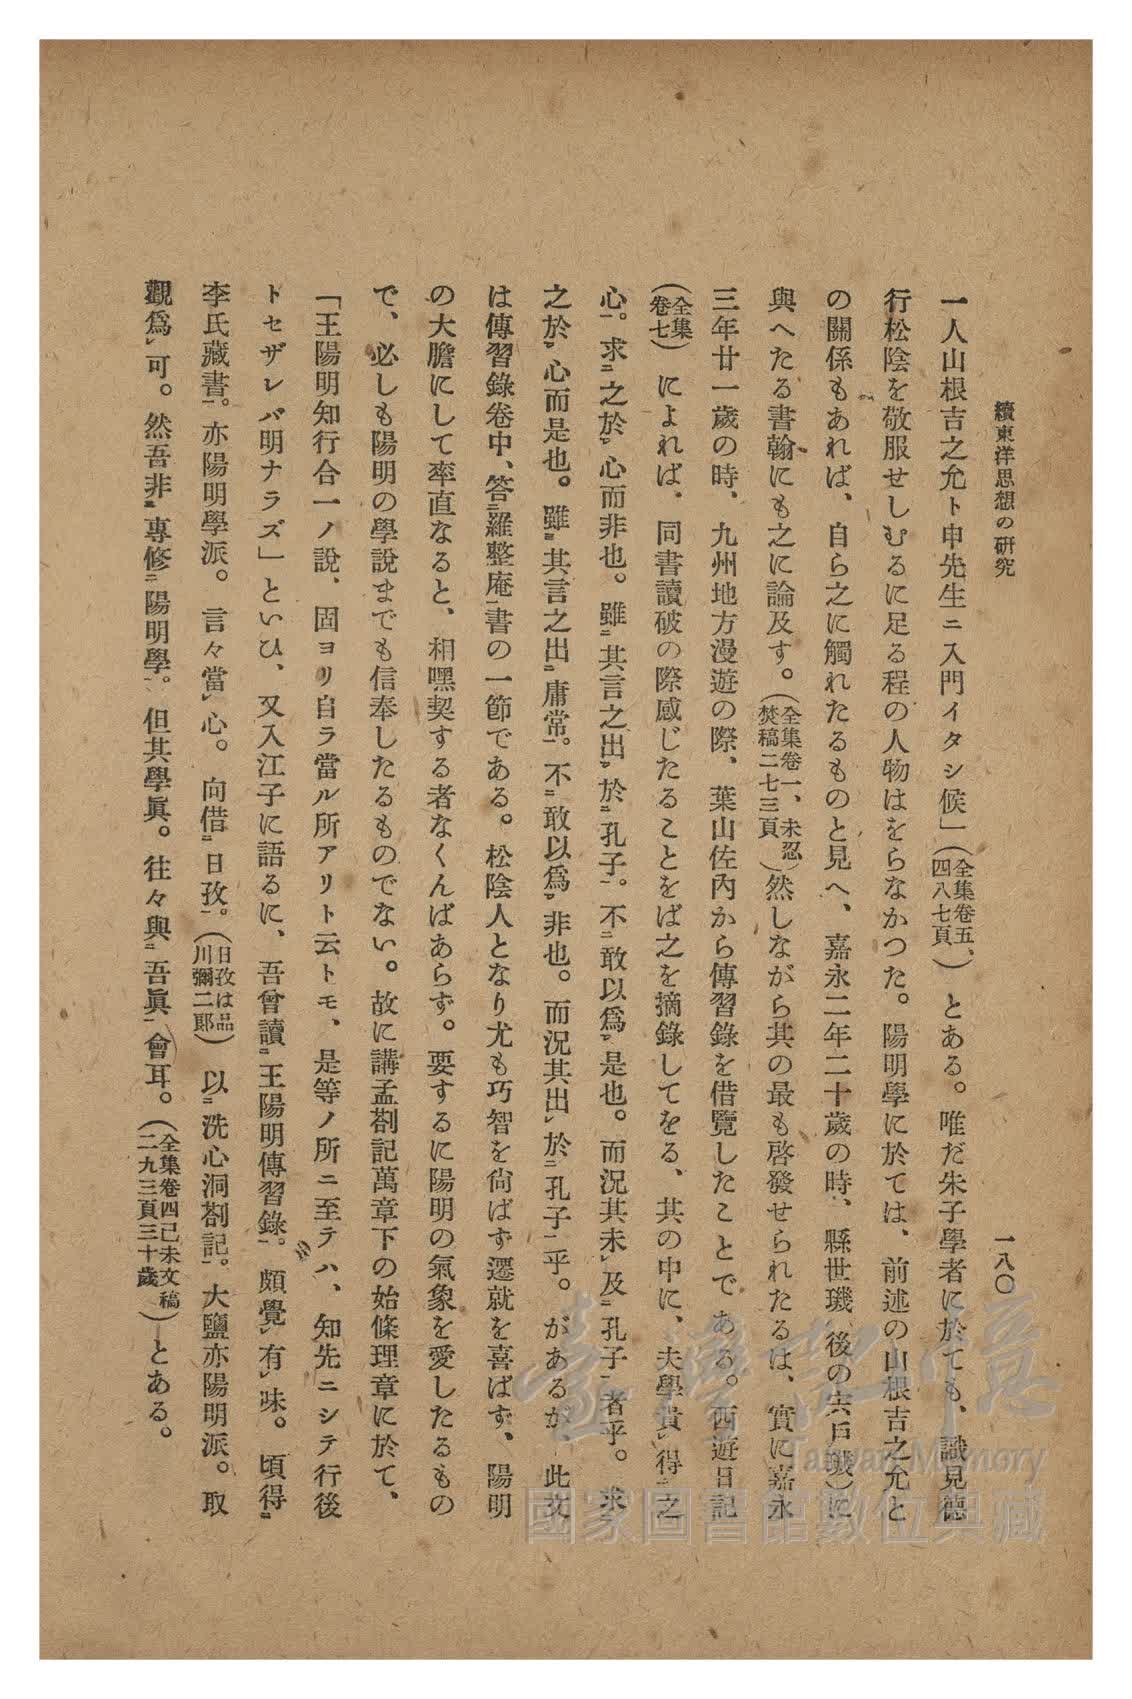 續東洋思想の硏究
一八〇
一人山根吉之允ト申先生ニ入門イタシ候」(全集卷五、四八七頁)とある。唯だ朱子學者に於ても、識見德
行松陰を敬服せしむるに足る程の人物はをらなかつた。陽明學に於ては、前述の山根吉之允と
の關係もあれば、自ら之に觸れたるものと見へ、嘉永二年二十歲の時、縣世璣(後の宍戶璣)に
與へたる書翰にも之に論及す。(全集卷一、未忍焚稿二七三頁)然しながら其の最も啓發せられたるは、實に嘉永
三年廿一歲の時、九州地方漫遊の際、葉山佐內から傳習錄を借覽したことである。西遊日記
(全集卷七)によれば、同書讀破の際感じたることをば之を摘錄してをる、其の中に、夫學貴レ得二之
心一。求二之於一レ心而非也。雖二其言之出一レ於二孔子一。不三敢以爲一レ是也。而況其未レ及二孔子一者乎。求二
之於一レ心而是也。雖三其言之出二庸常一。不三敢以爲一レ非也。而況其出レ於二孔子一乎。があるが、此文
は傳習錄卷中、答二羅整庵一書の一節である。松陰人となり尤も巧智を尙ばず遷就を喜ばず、陽明
の大膽にして率直なると、相嘿契する者なくんばあらず。要するに陽明の氣象を愛したるもの
で、必しも陽明の學說までも信奉したるものでない。故に講孟劄記萬章下の始條理章に於て、
「王陽明知行合一ノ說、固ヨリ自ラ當ル所アリト云トモ、是等ノ所ニ至テハ、知先ニシテ行後
トセザレバ明ナラズ」といひ、又入江子に語るに、吾曾讀二王陽明傳習錄一。頗覺レ有レ味。頃得二
李氏藏書一。亦陽明學派。言々當レ心。向借二日孜一。(日孜は品川彌二郞)以二洗心洞劄記一。大鹽亦陽明派。取
觀爲レ可。然吾非三專修二陽明學一。但其學眞。往々與二吾眞一會耳。(全集卷四己未文稿二九三頁三十歲)とある。
臺灣記憶
Taiwan Memory
國家圖書館數位典藏